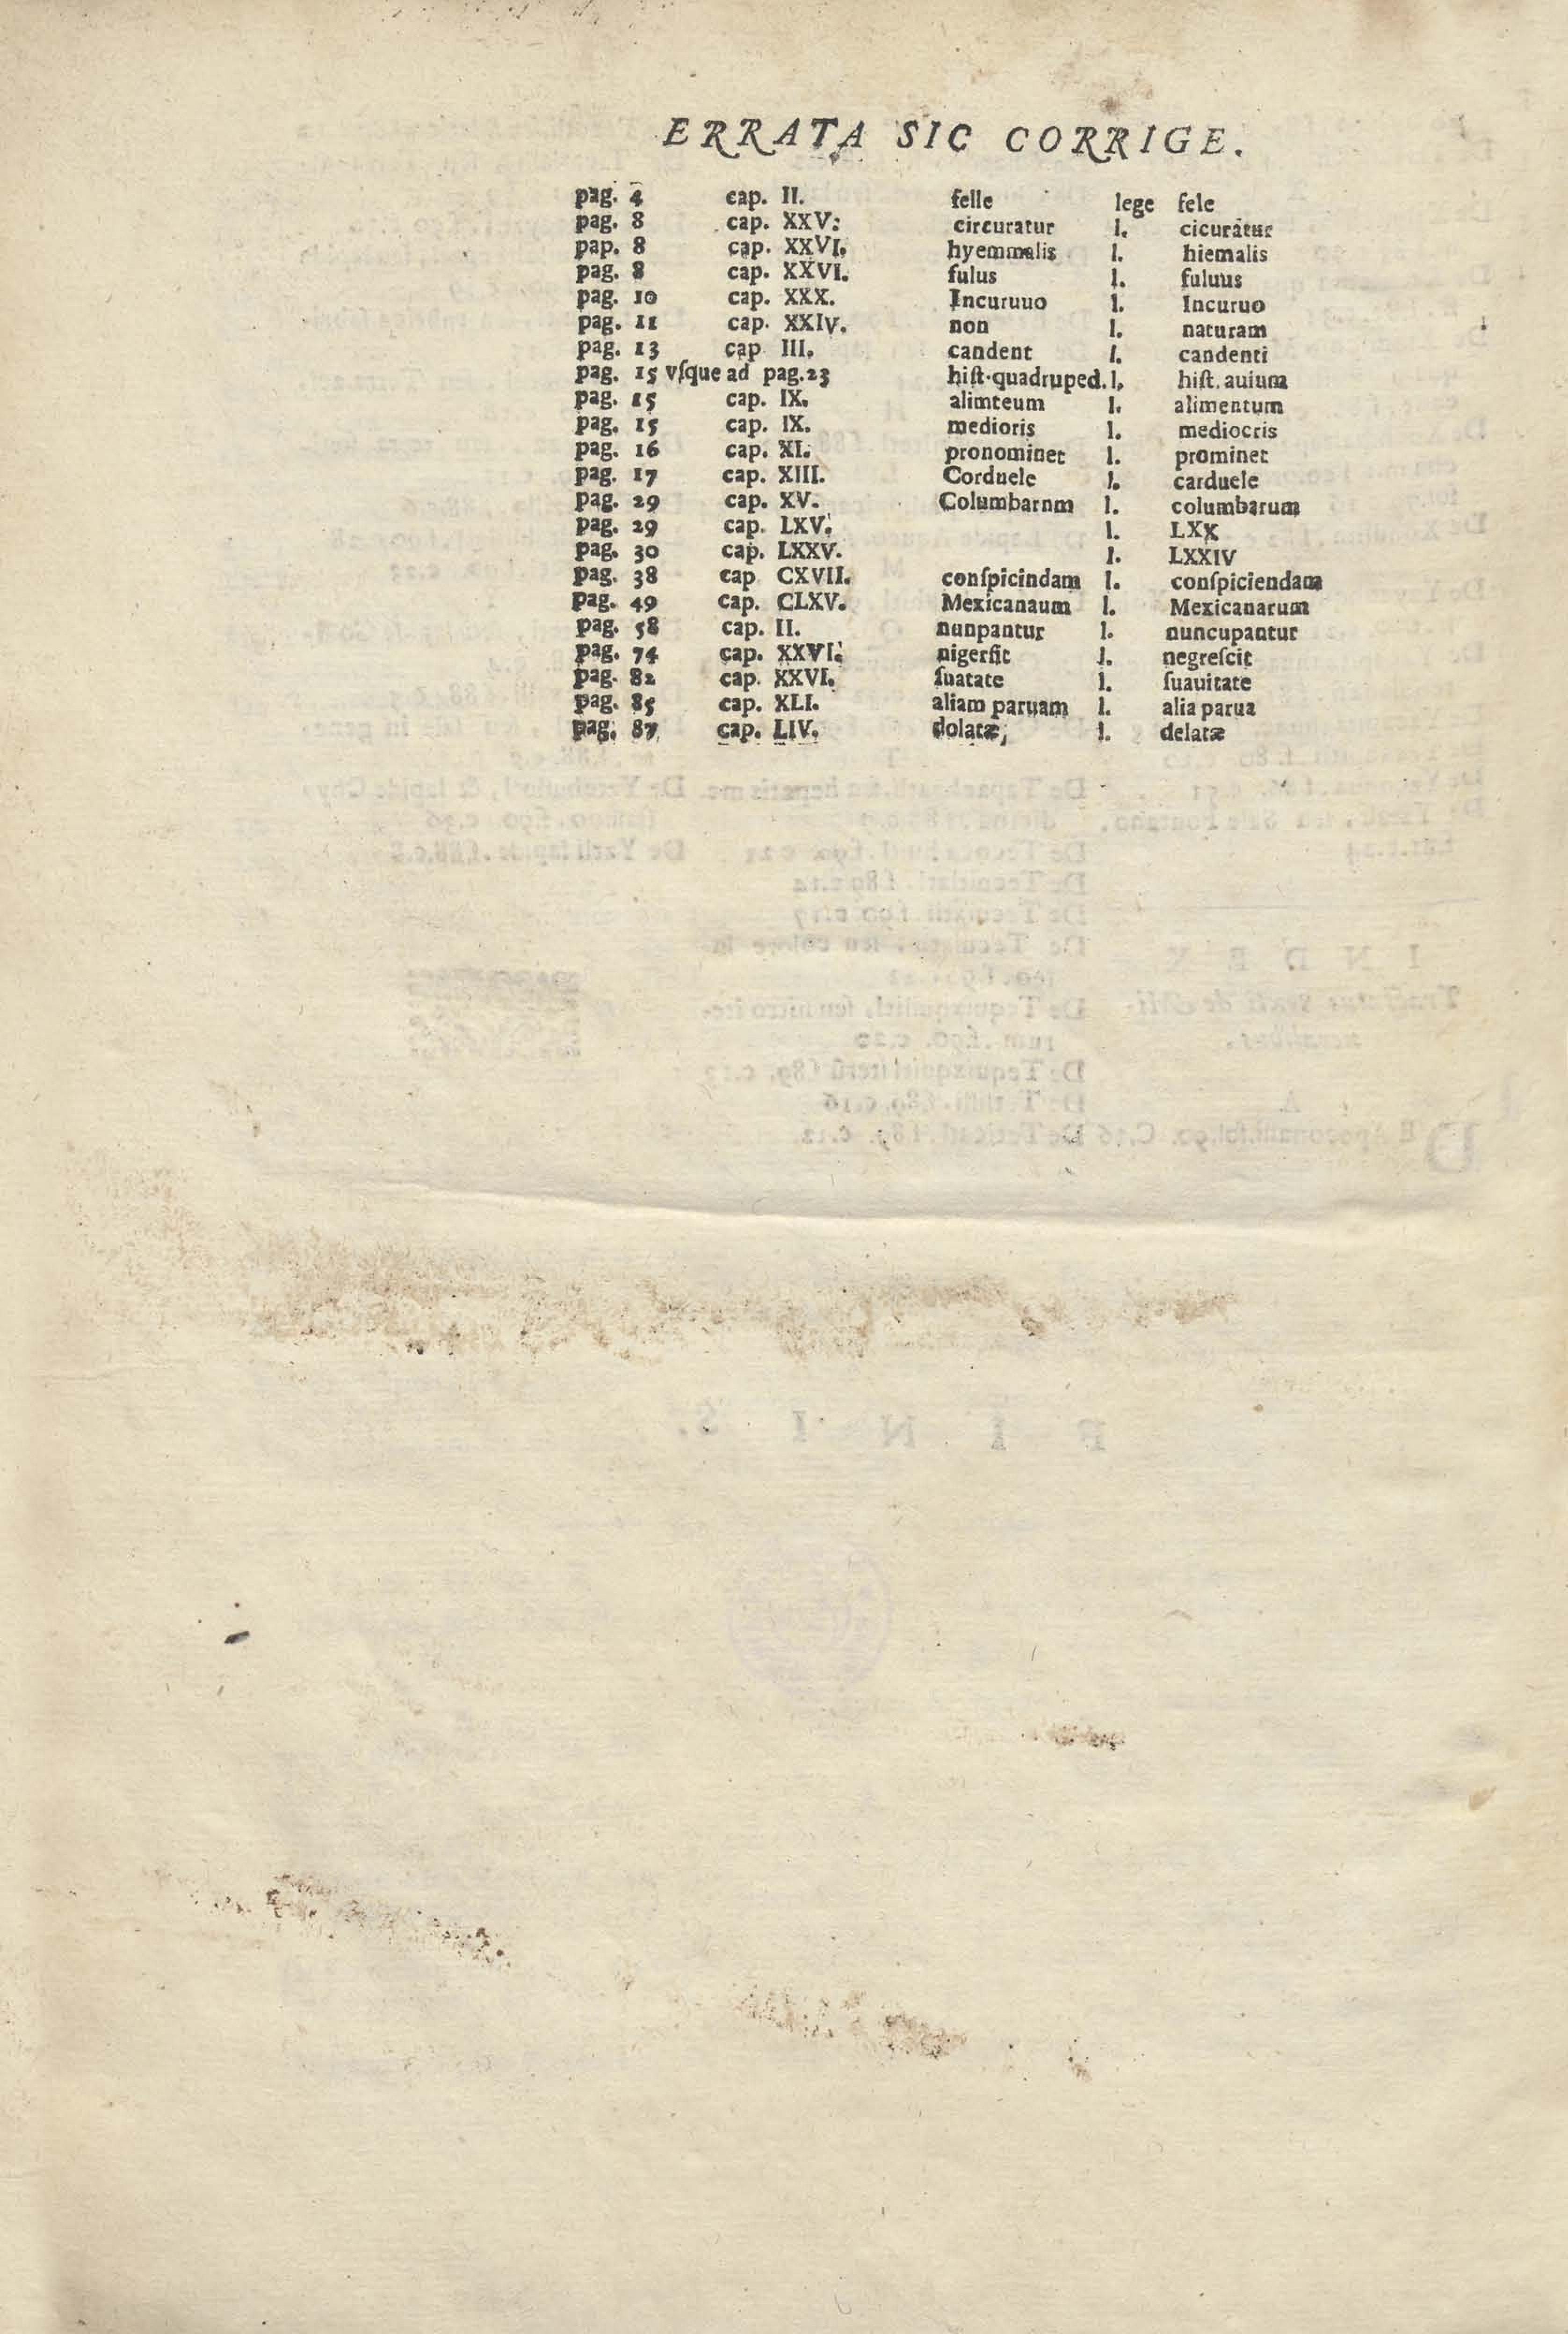 ERRATA SIC CORRIGE.
pag. 4 cap. II. felle lege fele
pag. 8 cap. XXV: circuratur l. cicuratur
pap. 8 cap. XXVI. hyemmalis l. hiemalis
pag. 8 cap. XXVI. fulus l. fuluus
pag. 10 cap. XXX. Incuruuo l. Incuruo
pag. 11 cap. XXIV. non l. naturam
pag. 13 cap III. candent l. candenti
pag. 15 vſque ad pag.23 hiſt.quadruped. l. hiſt. auium
pag. 15 cap. IX. alimteum l. alimentum
pag. 15 cap. IX. medioris l. mediocris
pag. 16 cap. XI. pronominet l. prominet
pag. 17 cap. XIII. Corduele l. carduele
pag. 29 cap. XV. Columbarnm l. columbarum
pag. 29 cap. LXV. l. LXX
pag. 30 cap. LXXV. l. LXXIV
pag. 38 cap CXVII. conſpicindam l. conſpiciendam
pag. 49 cap. CLXV. Mexicanaum l. Mexicanarum
pag. 58 cap. II. nunpantur l. nuncupantur
pag. 74 cap. XXVI. nigerſit l. negreſcit
pag. 82 cap. XXVI. ſuatate l. ſuauitate
pag. 85 cap. XLI. aliam paruam l. alia parua
pag. 87 cap. LIV. dolatæ, l. delatæ